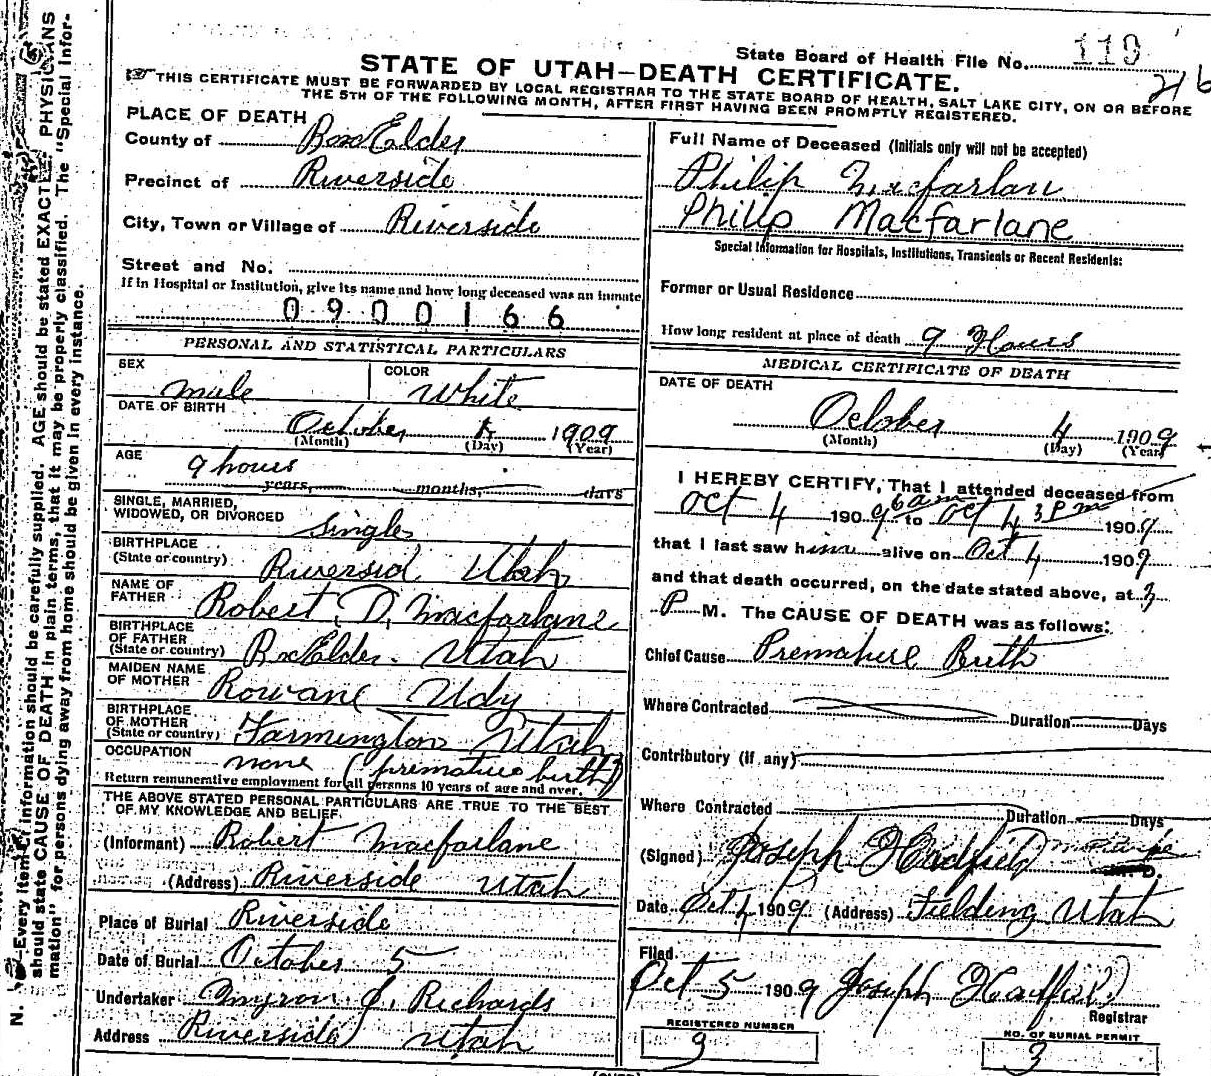 State Board of Health File No. 119
216
STATE OF UTAH—DEATH CERTIFICATE.
THIS CERTIFICATE MUST BE FORWARDED BY LOCAL REGISTRAR TO THE STATE BOARD OF HEALTH, SALT LAKE CITY, ON OR BEFORE
THE 5TH OF THE FOLLOWING MONTH, AFTER FIRST HAVING BEEN PROMPTLY REGISTERED.
PLACE OF DEATH
County of Box Elder
Precinct of Riverside
City, Town or Village of Riverside
Street and No.
If in Hospital or Institution, give its name and how long deceased was an inmate
0900166
PERSONAL AND STATISTICAL PARTICULARS
SEX male COLOR White
DATE OF BIRTH October 4 1909
(Month) (Day) (Year)
AGE 9 hours
years, months, days
SINGLE, MARRIED,
WIDOWED, OR DIVORCED Single
BIRTHPLACE
(State or country) Riversid Utah
NAME OF
FATHER Robert D. Macfarlane
BIRTHPLACE
OF FATHER
(State or country) Box Elder Utah
MAIDEN NAME
OF MOTHER Rowane Udy
BIRTHPLACE
OF MOTHER
(State or country) Farmington Utah
OCCUPATION none (premature birth)
Return remunerative employment for all persons 10 years of age and over.
THE ABOVE STATED PERSONAL PARTICULARS ARE TRUE TO THE BEST
OF MY KNOWLEDGE AND BELIEF.
(Informant) Robert Macfarlane
(Address) Riverside Utah
Place of Burial Riverside
Date of Burial October 5
Undertaker Myron J. Richards
Address Riverside Utah
Full Name of Deceased (Initials only will not be accepted)
Philip Macfarlan
Philip Macfarlane
Special Information for Hospitals, Institutions, Transients or Recent Residents:
Former or Usual Residence
How long resident at place of death 9 Hours
MEDICAL CERTIFICATE OF DEATH
DATE OF DEATH
October 4 1909
(Month) (Day) (Year)
I HEREBY CERTIFY, That I attended deceased from
Oct 4 1909 6 am to Oct 4 3 Pm 1909
that I last saw him alive on Oct 4 1909
and that death occurred, on the date stated above, at 3
P M. The CAUSE OF DEATH was as follows:
Chief Cause Premature Birth
Where Contracted Duration Days
Contributory (if any)
Where Contracted Duration Days
(Signed) Joseph Hadfield
Date Oct 4 1909 (Address) Fielding Utah
Filed
Oct 5 1909 Joseph Hadfield
Registrar
REGISTERED NUMBER
9
NO. OF BURIAL PERMIT
3
(OVER)
N. B.—Every item of information should be carefully supplied. AGE should be stated EXACTLY. PHYSICIANS
should state CAUSE OF DEATH in plain terms, that it may be properly classified. The "Special Infor-
mation" for persons dying away from home should be given in every instance.